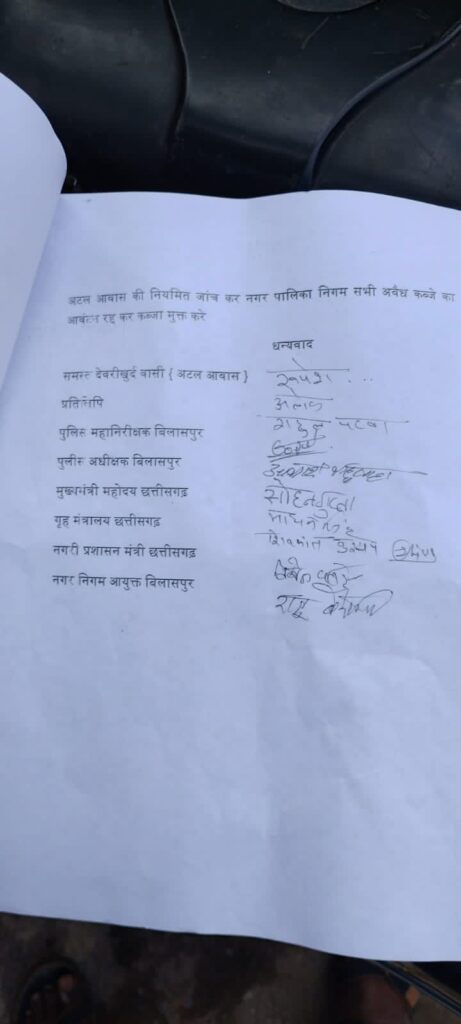 अटल आवास की नियमित जांच कर नगर पालिका निगम सभी अवैध कब्जे का
आवंटन रद्द कर कब्जा मुक्त करे
धन्यवाद
समस्त देवरीखुर्द वासी { अटल आवास }
रूपेश
प्रतिलिपि
अलोक
पुलिस महानिरीक्षक बिलासपुर
राहुल पटवा
पुलीस अधीक्षक बिलासपुर
मुख्यमंत्री महोदय छत्तीसगढ़
सोहन गुप्ता
गृह मंत्रालय छत्तीसगढ़
नगरी प्रशासन मंत्री छत्तीसगढ़
शिवकांत
नगर निगम आयुक्त बिलासपुर
राजू